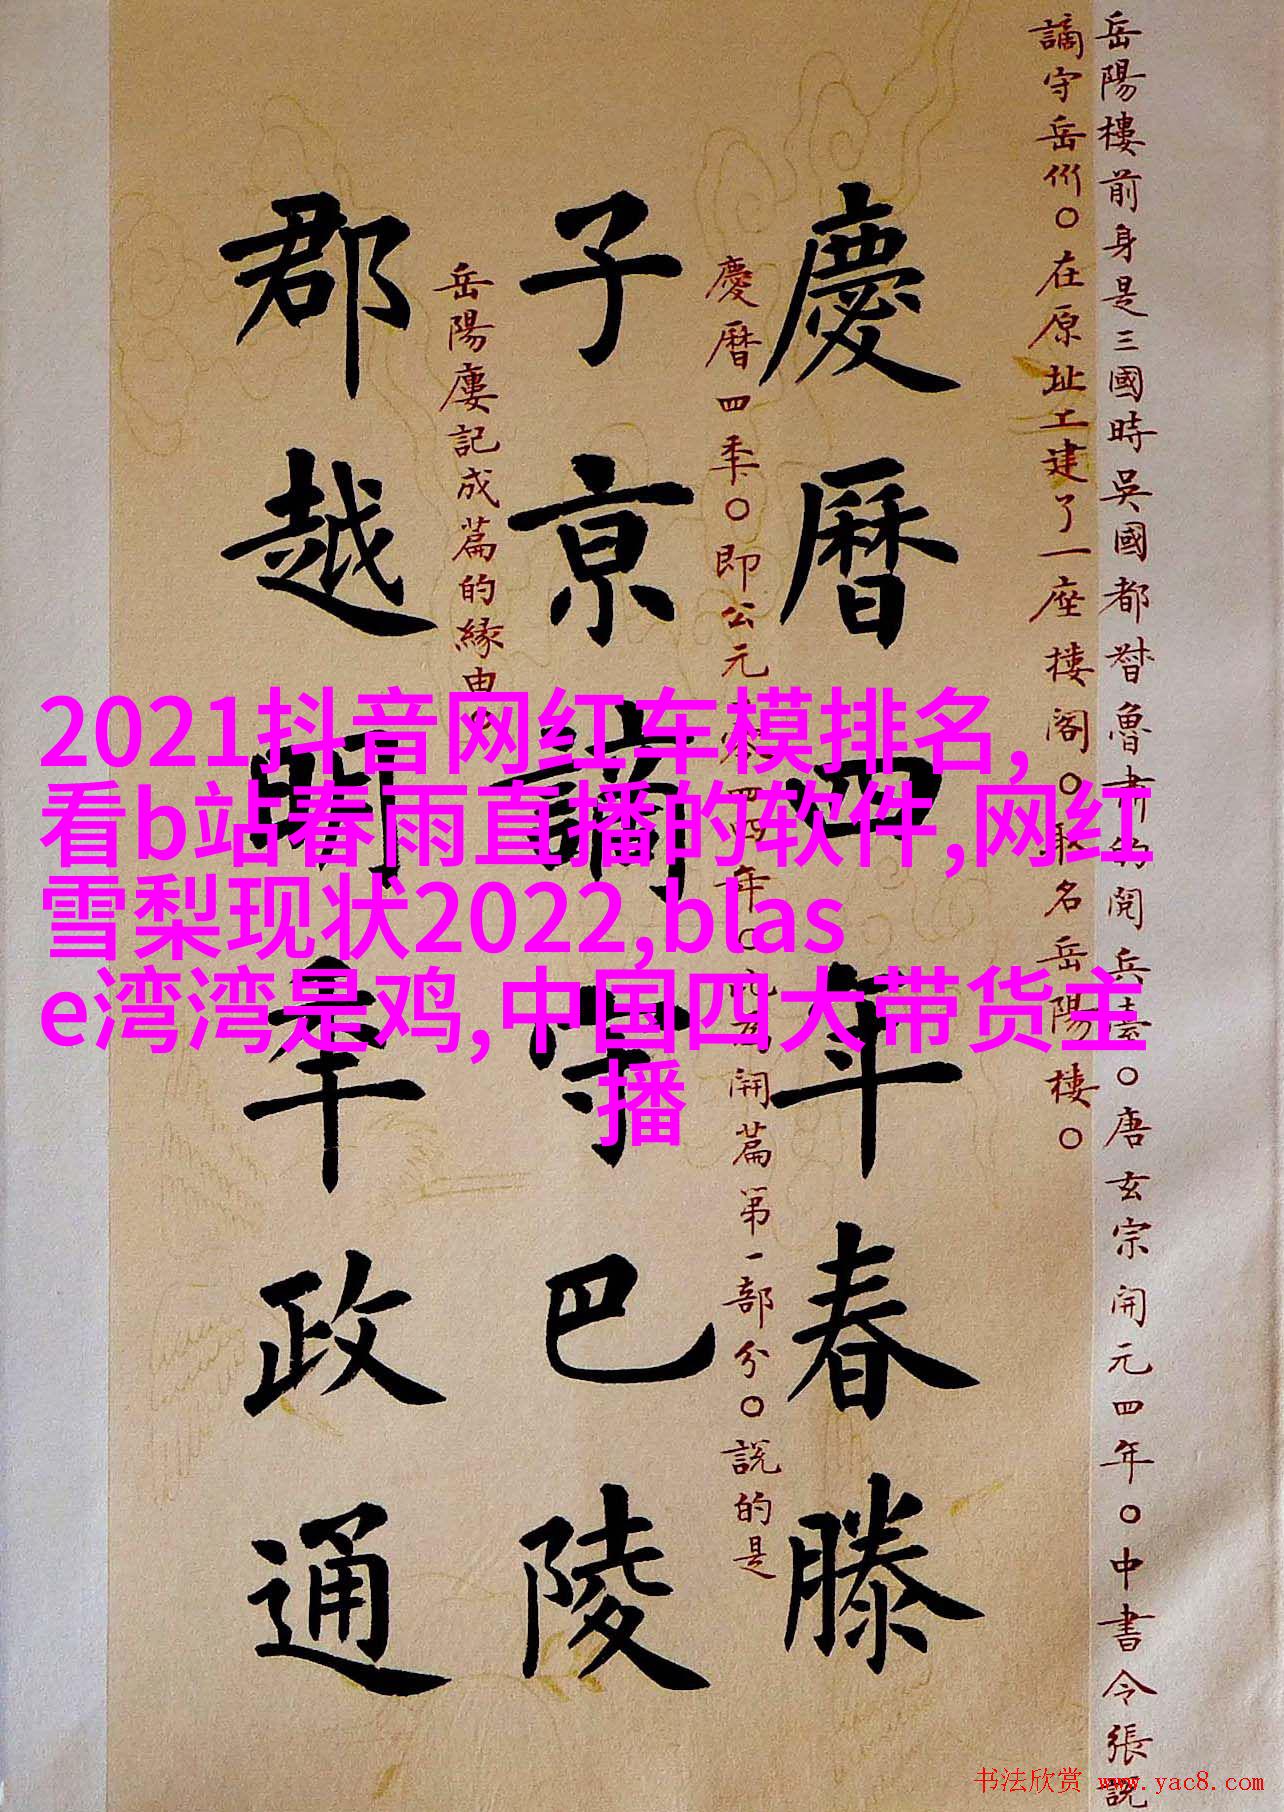 岳陽樓前身是三國時吳國都督魯肅的閱兵臺。唐玄宗開元四年。中書令張說
謫守岳州。在原址上建了一座樓閣。取名岳陽樓。
慶曆四年春滕
慶曆四年。即公元一零四四年。此為開篇第一部分。說的是
子京謫守巴陵
岳陽廔記成篇的緣由。
郡越明年政通
2021抖音网红车模排名,
看b站春雨直播的软件,网红
雪梨现状2022,blas
e湾湾是鸡,中国四大带货主
播
书法欣赏 www.yac8.com